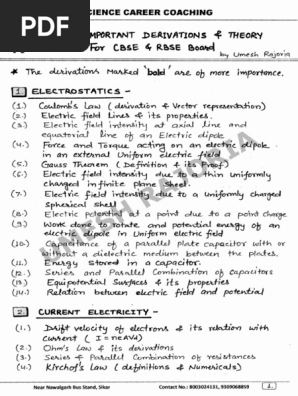 PDF
SCIENCE CAREER COACHING
IMPORTANT DERIVATIONS & THEORY
For CBSE & RBSE Board
by Umesh Rajoria
* The derivations marked 'bold' are of more importance.
1. ELECTROSTATICS -
(1.) Coulomb's Law (derivation & Vector representation)
(2.) Electric field Lines & its properties.
(3.) Electric field intensity at axial line and
equatorial line of an Electric dipole
(4.) Force and Torque acting on an electric dipole
in an external Uniform electric field
(5.) Gauss Theorem (Definition & its Proof)
(6.) Electric field intensity due to a thin uniformly
charged infinite plane sheet.
(7.) Electric field intensity due to a uniformly charged
Spherical shell
(8.) Electric potential at a point due to a point charge
(9.) Work done to rotate and potential energy of an
electric dipole in Uniform electric field
(10.) Capacitance of a parallel plate capacitor with or
without a dielectric medium between the plates.
(11.) Energy stored in a capacitor.
(12.) Series and Parallel Combination of Capacitors
(13.) Equipotential Surfaces & its properties
(14.) Relation between electric field and potential
2. CURRENT ELECTRICITY -
(1.) Drift velocity of electrons & its relation with
current ( I = neAVd)
(2.) Ohm's Law & its derivations
(3.) Series & Parallel Combination of resistances
(4.) Kirchof's Law ( definitions & Numericals)
Near Nawalgarh Bus Stand, Sikar
Contact No.: 8003024131, 9509068859
1.